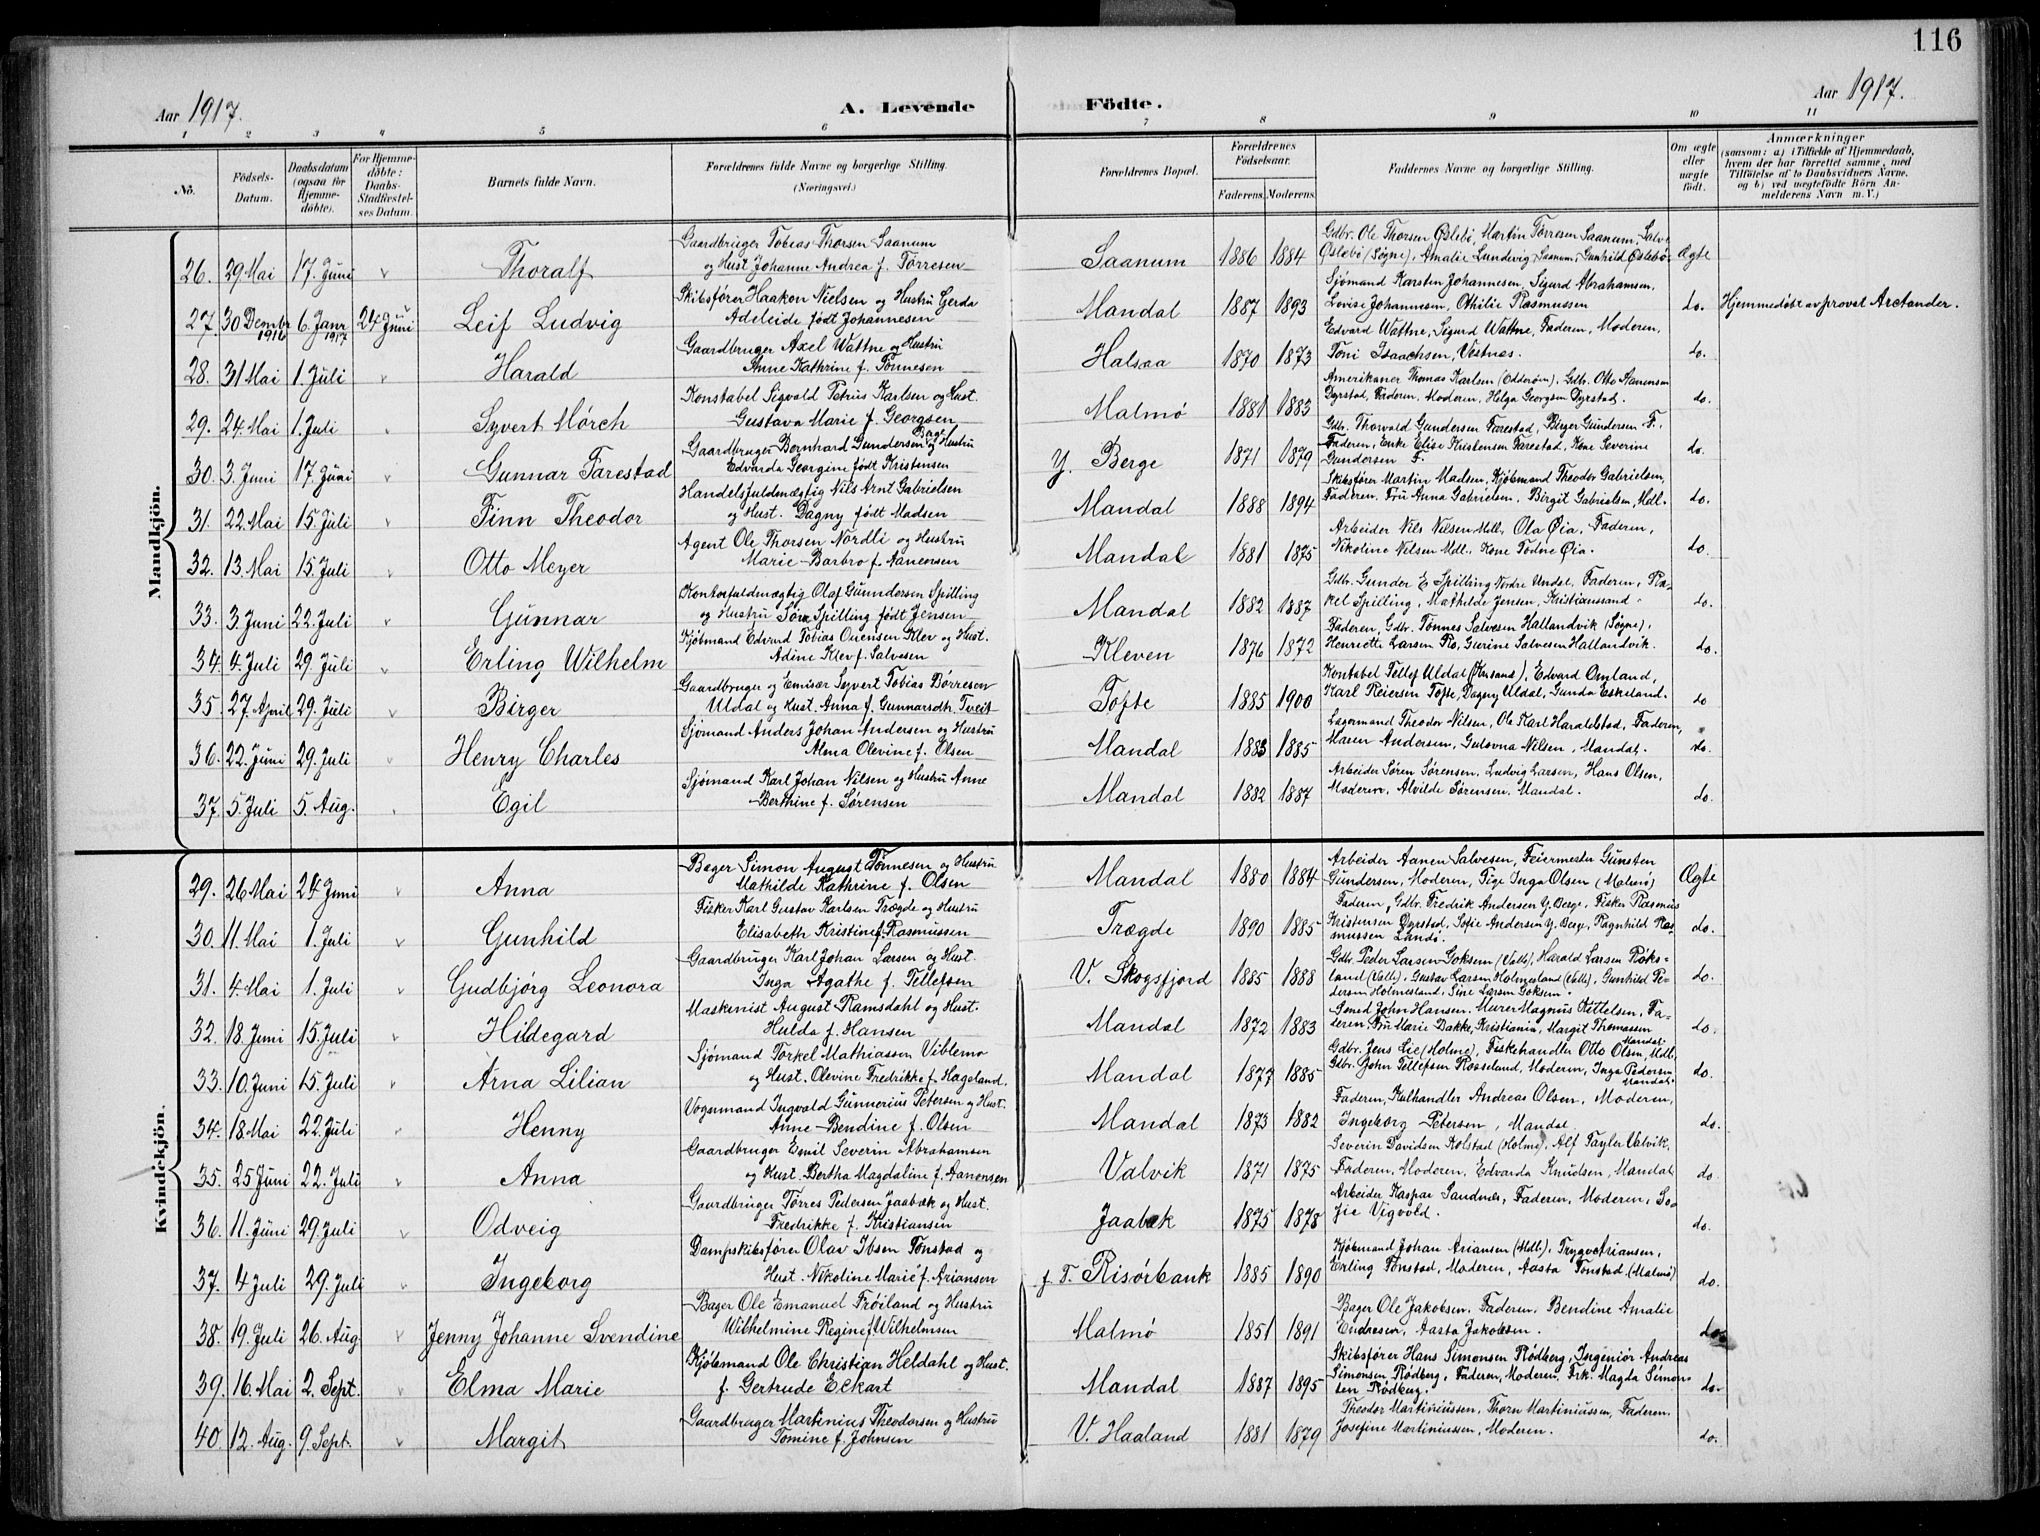 116
Aar 1917. A. Levende Födte. Aar 1917.
1 2 3 4 5 6 7 8 9 10 11
No. Födsels-Datum. Daabsdatum (ogsaa for Hjemme-döbte). For Hjemme-döbte: Daabs-Stadfæstel-ses Datum. Barnets fulde Navn. Forældrenes fulde Navne og borgerlige Stilling. (Næringsvei.) Forældrenes Bopæl. Forældrenes Födselsaar. Faderens. Moderens. Faddernes Navne og borgerlige Stilling. Om ægte eller uægte födt. Anmærkninger (saasom: a) i Tilfælde af Hjemmedaab, hvem der har forrettet samme, med Tilföielse af to Daabsvidners Navne, og b) ved uægtefödte Börn An-melderens Navn m. V.)
Mandkjön.
26. 29. Mai 17. Juni v Thoralf Gaardbruger Tobias Thorsen Saanum og Hust Johanne Andrea f. Tørresen Saanum 1886 1884 Gdbr. Ole Thorsen Øslebö, Martin Tørresen Saanum, Salve Øslebø (Søgne), Amalie Lundevig Saanum, Gunhild Øslebø. Ægte
27. 30 Dembr 1916 6. Janr 1917 24 Juni Leif Ludvig Skibsfører Haakon Nielsen og Hustru Gerda Adeleide født Johannesen Mandal 1887 1893 Sjømand Karsten Johannesen, Sigurd Abrahamsen, Lovise Johannesen, Othilie Rasmussen do. Hjemmedøbt av provst Arctander.
28. 31 Mai 1. Juli v Harald Gaardbruger Axel Wattne og Hustru Anne Kathrine f. Tønnesen Halsaa 1870 1873 Edvard Wattne, Sigurd Wattne, Faderen, Moderen, Toni Isaachsen, Vestnes. do.
29. 24. Mai 1. Juli v Syvert Mörch Konstabel Sigvald Petrus Karlsen og Hust. Gustava Marie f. Georgsen Malmø 1881 1883 Amerikaner Thomas Karlsen (Odderøen), Gdb. Otto Hanensen Dyrstad, Faderen, Moderen, Helga Georgsen Dyrstad. do.
30. 3. Juni 17 Juni v Gunnar Farestad Gaardbruger Bernhard Gundersen Berg og Hustru Edvarda Georgine født Kristensen Y. Berge 1871 1879 Gdb. Thorvald Gundersen Farestad, Birger Gundersen F., Faderen, Enke Elise Kristensen Farestad, Kone Severine Gundersen F. do.
31. 22. Mai 15. Juli v Finn Theodor Handelsfuldmægtig Nils Arnt Gabrielsen og Hust. Dagny født Madsen Mandal 1888 1894 Skibsfører Martin Madsen, Kjøbmand Theodor Gabrielsen, Faderen, Fru Anna Gabrielsen, Birgit Gabrielsen, Mdl. do.
32. 13. Mai 15. Juli v Otto Meyer Agent Ole Thorsen Nordli og Hustru Marie Barbro f. Aanensen Mandal 1881 1875 Arbeider Nils Nilsen Mdl., Ola Øia, Faderen, Nikoline Nilsen Mdl., Kone Tødne Øia. do.
33. 3. Juni 22. Juli v Gunnar Kontorfuldmægtig Olaf Gunndersen Spilling og Hustru Tora Spilling født Jensen Mandal 1882 1887 Gdb. Gunder E Spilling Nordre Undal, Faderen, Ra-kel Spilling, Mathilde Jensen, Kristianssand. do.
34. 4. Juli 29. Juli v Erling Wilhelm Kjøbmand Edvard Tobias Ouensen Klev og Hust. Adine Klev f. Salvesen Kleven 1876 1872 Faderen, Gdb. Tønnes Salvesen Hallandvik (Søgne), Henriette Larsen Ro, Gurine Salvesen Hallandvik. do.
35. 27. April 29. Juli v Birger Gaardbruger og Emisær Syvert Tobias Børresen Uldal og Hust. Anna f. Gunnarsdh. Tveit Tofte 1885 1900 Kontabel Tellef Uldal (Krsand), Edvard Omland, Karl Reiersen Tofte, Dagny Uldal, Gunda Eskeland. do
36. 22. Juni 29. Juli v Henry Charles Sjømand Anders Johan Andersen og Hustru Alma Olevine f. Olsen Mandal 1883 1885 Lagermand Theodor Nilsen, Ole Karl Haraldstad, Faderen, Maren Andersen, Gulovna Nilsen, Mandal. do.
37. 5. Juli 5. Aug. v Egil Sjømand Karl Johan Nilsen og Hustru Anne Berthine f. Sørensen Mandal 1882 1887 Arbeider Søren Sørensen, Ludvig Larsen, Hans Olsen, Moderen, Alvilde Sørensen, Mandal. do.
Kvindekjön.
29. 26 Mai 24 Juni v Anna Bager Simon August Tønnesen og Hustru Mathilde Kathrine f. Olsen Mandal 1880 1884 Arbeider Aanen Salvesen, Feiermester Gunsten Gundersen, Moderen, Pige Inga Olsen (Malmø) Ægte
30. 11 Mai 1. Juli v Gunhild Fisker Karl Gustav Karlsen Trægde og Hustru Elisabeth Kristine f. Rasmussen Trægde 1890 1885 Faderen, Gdbr. Fredrik Andersen Y. Berge, Fisker Rasmus Kristensen Dyrstad, Sofie Andersen Y. Berge, Ragnhild Ras-mussen Landø. do.
31. 4. Mai 1. Juli v Gudbjörg Leonora Gaardbruger Karl Johan Larsen og Hust. Inga Agathe f. Tellefsen V. Skogsfjord 1885 1888 Gdb. Peder Larsen Goksem (Valle), Harald Larsen Røks-land (Valle), Gustav Larsen Holmesland (Valle), Gunhild Pe-dersen Holmesland, Sine Larsen Goksem. do.
32. 18. Juni 15. Juli v Hildegard Maskenist August Ramsdahl og Hust. Hulda f. Hansen Mandal 1872 1883 Smed John Hansen, Murer Magnus Kittelsen, Fa-deren, Fru Marie Bakke, Kristiania, Margit Thomassen Mandal. do.
33. 10. Juni 15. Juli v Arna Lilian Sjømand Torkel Mathiassen Viblemo og Hust. Olevine Fredrikke f. Hageland. Mandal 1877 1885 Gdbr. Jens Lie (Holme), Fiskehandler Otto Olsen, Mdl. Gdbr. John Tellefsen Rosseland, Moderen, Inga Pedersen Mandal. do.
34. 18 Mai 22. Juli Henny Vognmand Ingvald Gunnerius Petersen og Hust. Anne Bendine f. Olsen Mandal 1873 1882 Faderen, Kulhandler Andreas Olsen, Moderen, Ingeborg Petersen, Mandal. do.
35. 25 Juni 22. Juli v Anna Gaardbruger Emil Severin Abrahamsen og Hust. Bertha Magdaline f. Aanonsen Valvik 1871 1875 Severin Davidsen Kolstad (Holme), Alf Tayler Valvik, Faderen, Moderen, Edvarda Knudsen, Mandal do.
36. 11. Juni 29. Juli v Odveig Gaardbruger Tørres Pedersen Jaabæk og Hust. Fredrikke f. Kristiansen Jaabæk 1875 1878 Arbeider Kaspar Sandnes, Faderen, Moderen, So-fie Vigvold. do.
37. 4 Juli 29. Juli v Ingeborg Dampskibsfører Olav Ibsen Tønstad og Hust. Nikoline Marie f. Ariansen f. T. Risörbank 1885 1890 Kjøbmand Johan Ariansen (Mdl.), Trygve Ariansen, Erling Tønstad, Moderen, Aasta Tønstad (Malmø) do.
38. 19. Juli 26. Aug v Jenny Johanne Svendine Bager Ole Emanuel Frøiland og Hustru Wilhelmine Regine f. Wilhelmsen Malmø 1851 1891 Bager Ole Jakobsen, Faderen, Bendine Amalie Endresen, Aasta Jakobsen. do.
39. 16. Mai 2. Sept. v Elma Marie Kjøbmand Ole Christian Heldahl og Hust. f. Gertrude Eckart Mandal 1887 1895 Skibsfører Hans Simonsen Rödberg, Ingeniør Andreas Simonsen Rödberg, Faderen, Moderen, Frk. Magda Simon-sen Rödberg. do.
40. 12. Aug. 9. Sept. v Margit Gaardbruger Martinius Theodorsen og Hustru Tomine f. Johnsen V. Haaland 1881 1879 Theodor Martiniussen, Thorn Martiniussen, Faderen. Josefine Martiniussen, Moderen. do.